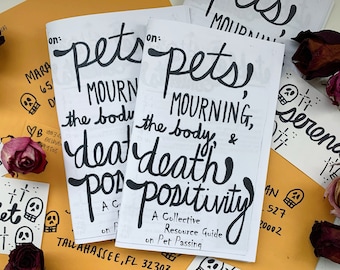 on:
pets,
MOURNING,
the body, &
death
positivity
A Collective
Resource Guide
on Pet Passing
on:
pets,
MOURNING
the body,
death
posi
A Co
Re
on
MARA
65
TALLAHASSEE, FL 32303
serene
AN
527
0002
et